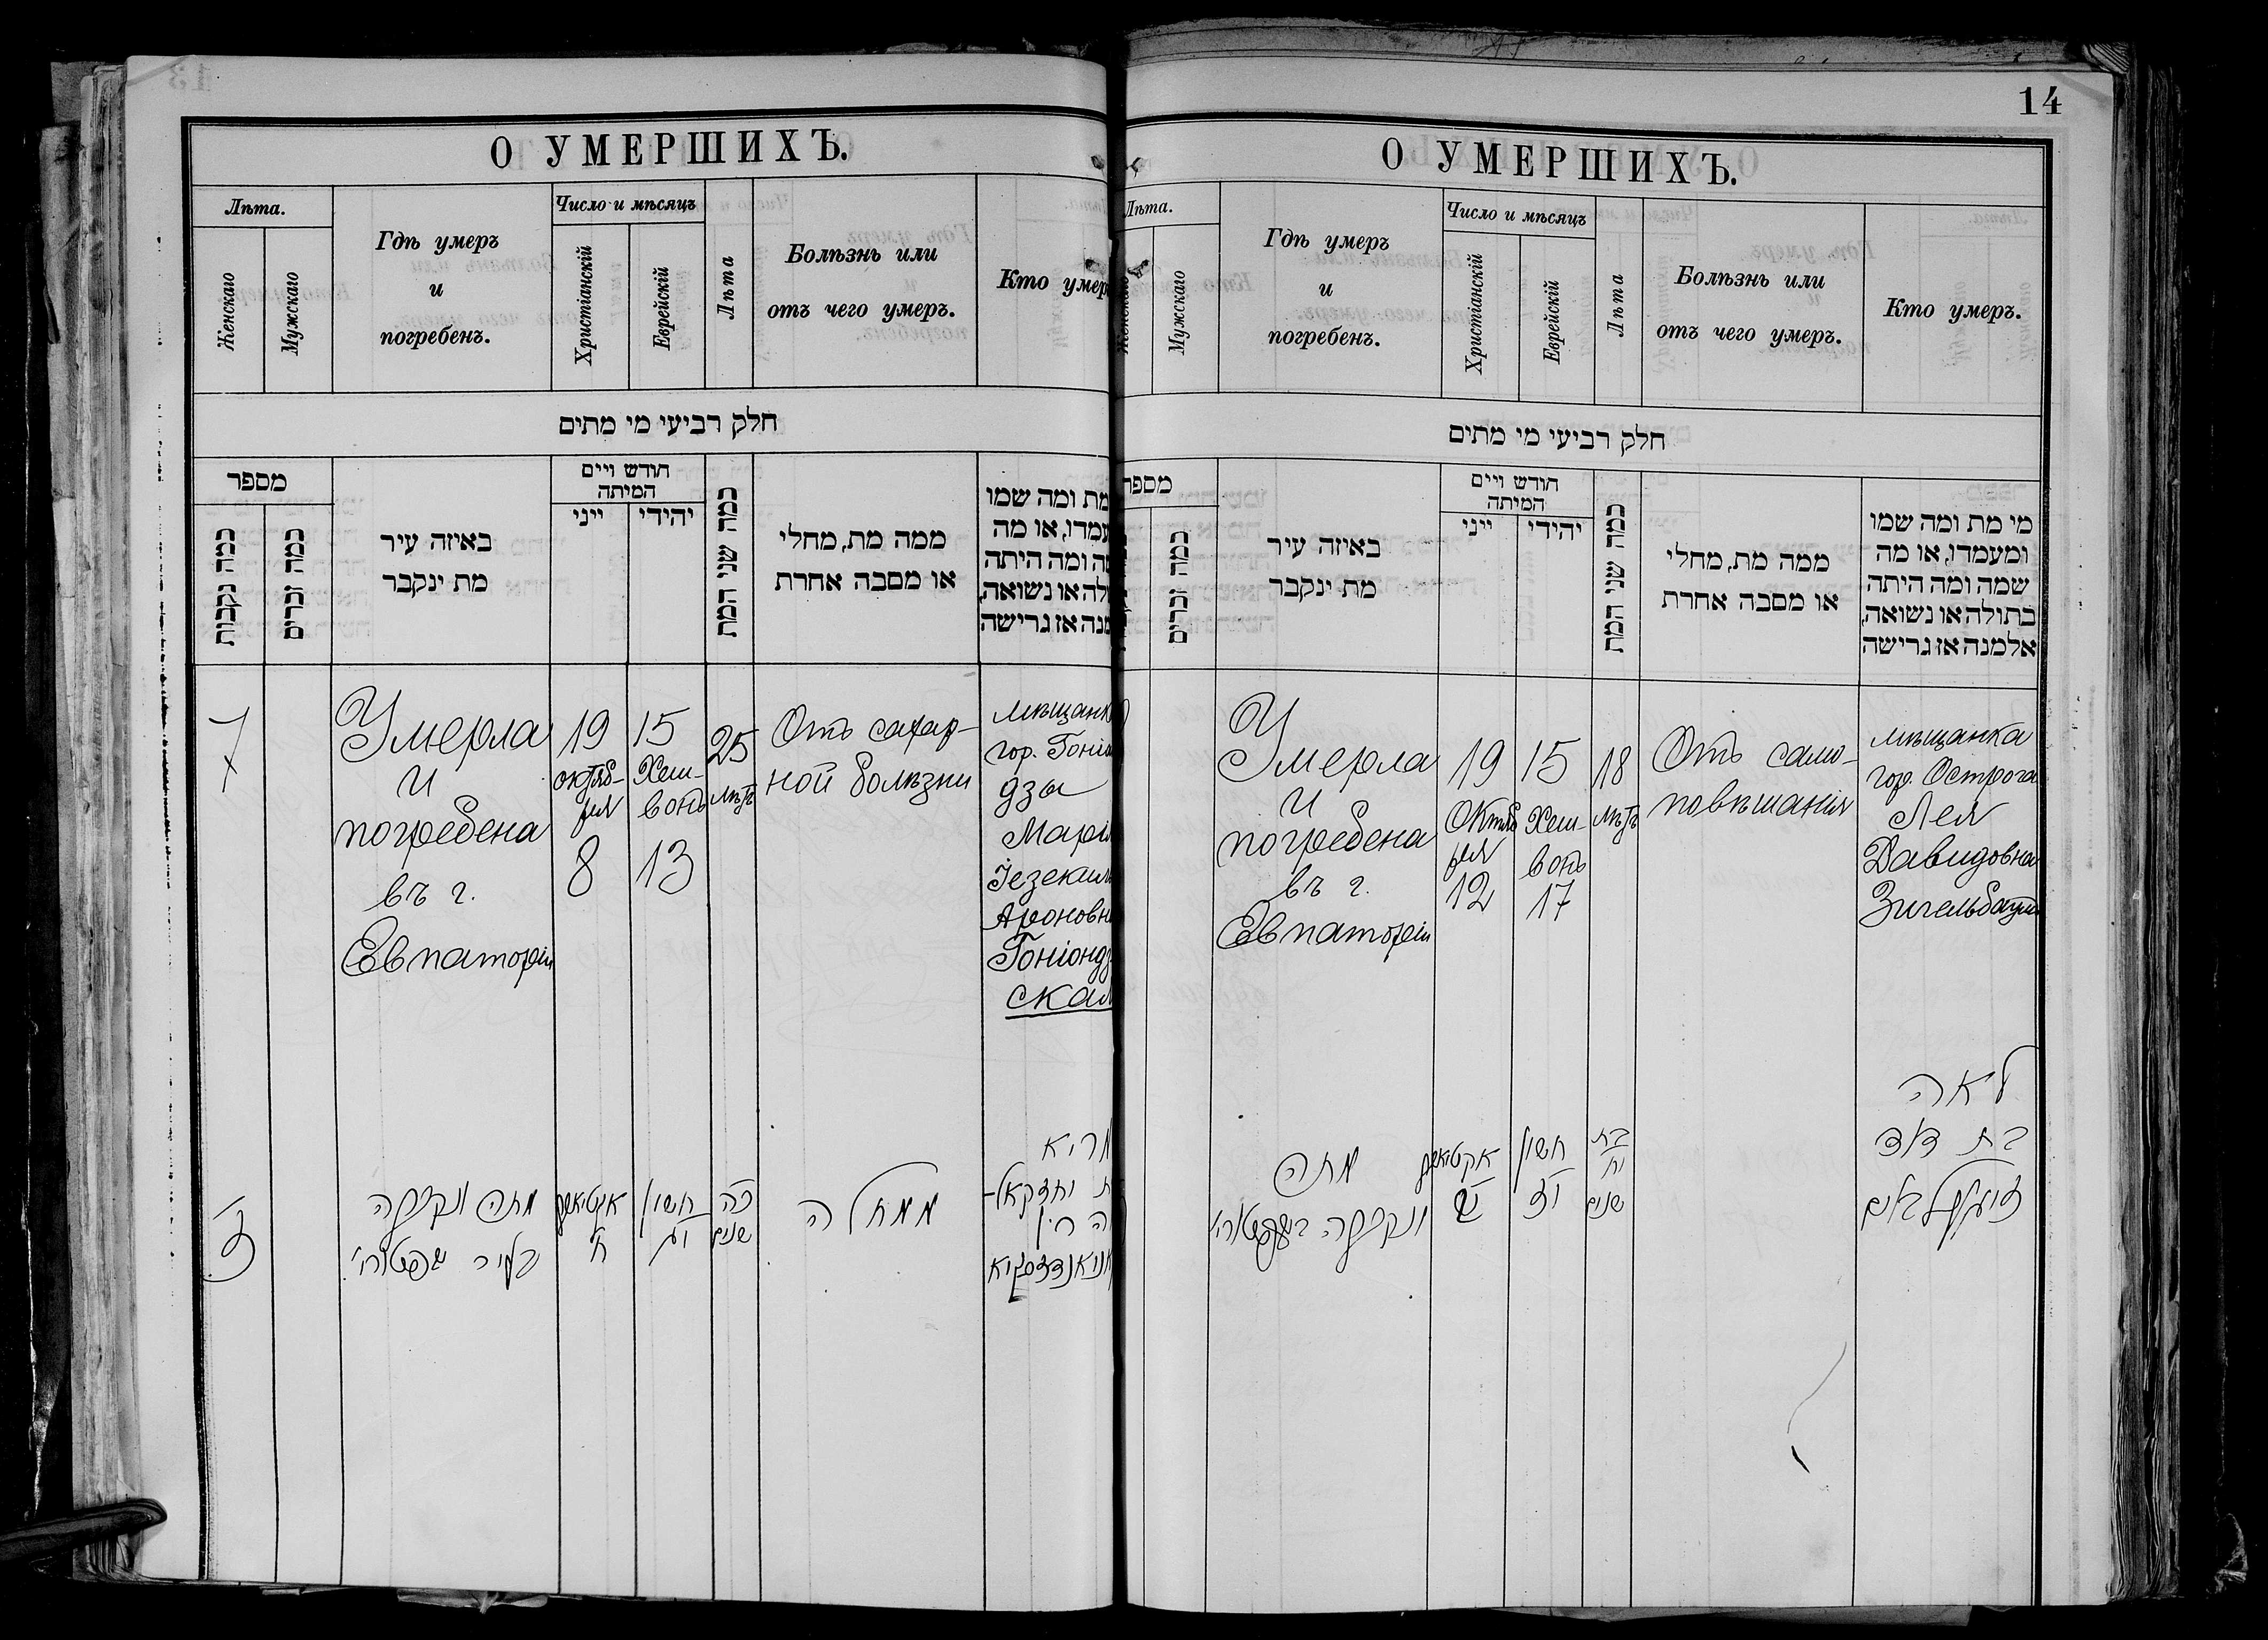 О УМЕРШИХЪ.
Лѣта.
Женскаго
Мужскаго
Гдѣ умеръ
и
погребенъ.
Число и мѣсяцъ
Христіанскій
Еврейскій
Лѣта
Болѣзнь или
отъ чего умеръ.
Кто умер
חלק רביעי מי מתים
מספר
כמה נקבות
כמה זכרים
באיזה עיר
מת ינקבר
חודש ויים
המיתה
ייני
יהידי
כמה שני המת
ממה מת, מחלי
או מסבה אחרת
מת ומה שמו
עמדו, או מה
מה ומה היתה
ולה או נשואה,
מנה אז גרישה
7
Умерла
и
погребена
въ г.
Евпаторіи
19
октяб-
ря
8
15
Хеш-
вонъ
13
25
лѣтъ
Отъ сахар-
ной болѣзни
мѣщанк
гор. Гоніо
дзы
Марія
Іезекиль
Ароновн
Гоніондз
ская
מתה ונקברה
בעיר
ח
חשון
יג
כה
שנים
ממחלה
מריא
14
О УМЕРШИХЪ.
Лѣта.
Женскаго
Мужскаго
Гдѣ умеръ
и
погребенъ.
Число и мѣсяцъ
Христіанскій
Еврейскій
Лѣта
Болѣзнь или
отъ чего умеръ.
Кто умеръ.
חלק רביעי מי מתים
מספר
כמה זכרים
באיזה עיר
מת ינקבר
חודש ויים
המיתה
ייני
יהידי
כמה שני המת
ממה מת, מחלי
או מסבה אחרת
מי מת ומה שמו
ומעמדו, או מה
שמה ומה היתה
בתולה או נשואה,
אלמנה אז גרישה
Умерла
и
погребена
въ г.
Евпаторіи
19
Октяб
ря
12
15
Хеш-
вонъ
17
18
лѣтъ
Отъ само-
повѣшанія
мѣщанка
гор. Острога
Лея
Давидовна
Зигельбаумъ
מתה
ונקברה
חשון
יז
בת
יח
שנים
לאה
בת דוד